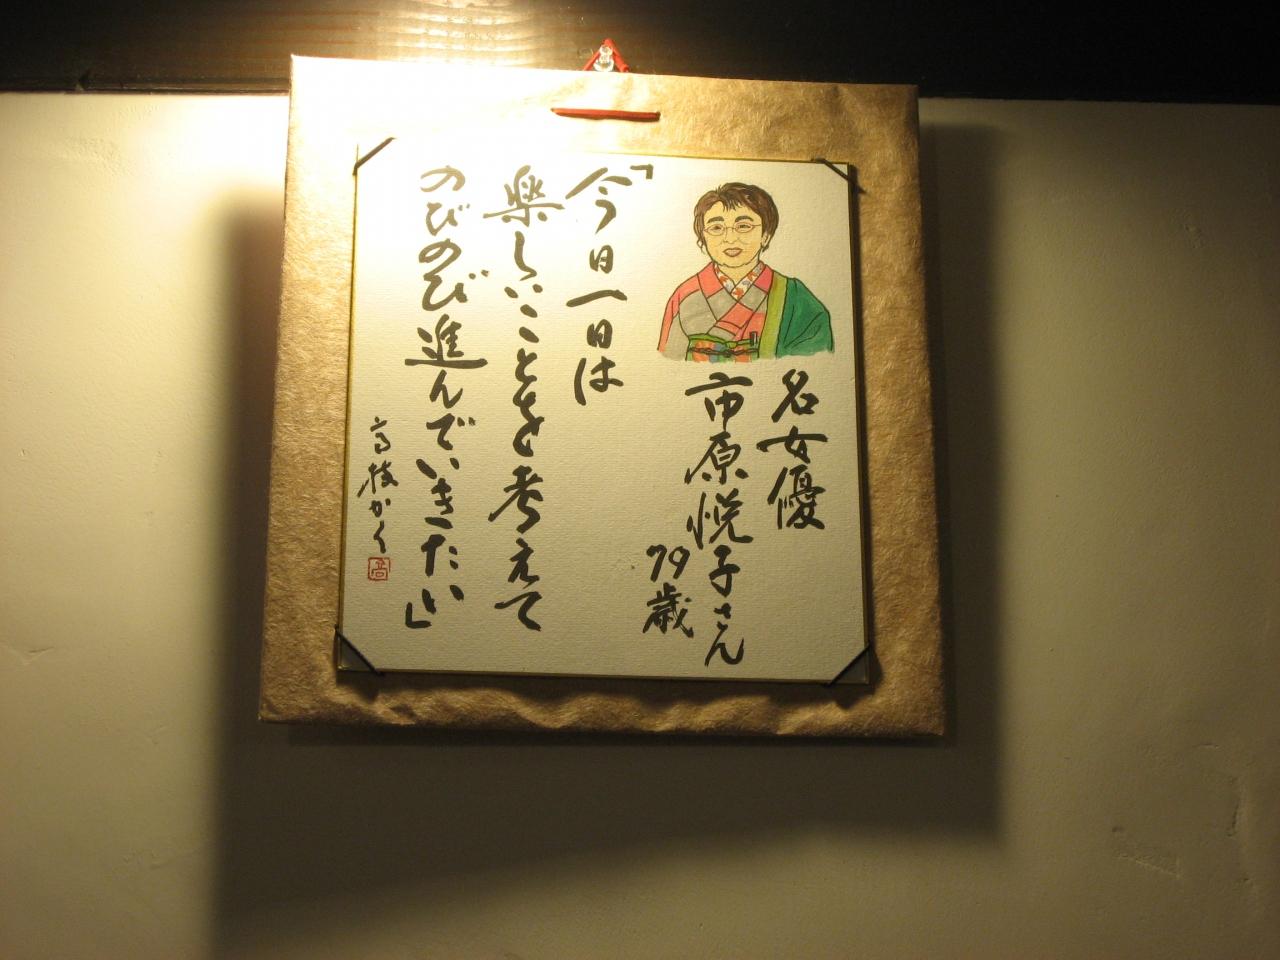 名女優
市原悦子さん
79歳
「今日一日は
楽しいことを考えて
のびのび進んでいきたい」
高枝かく
高